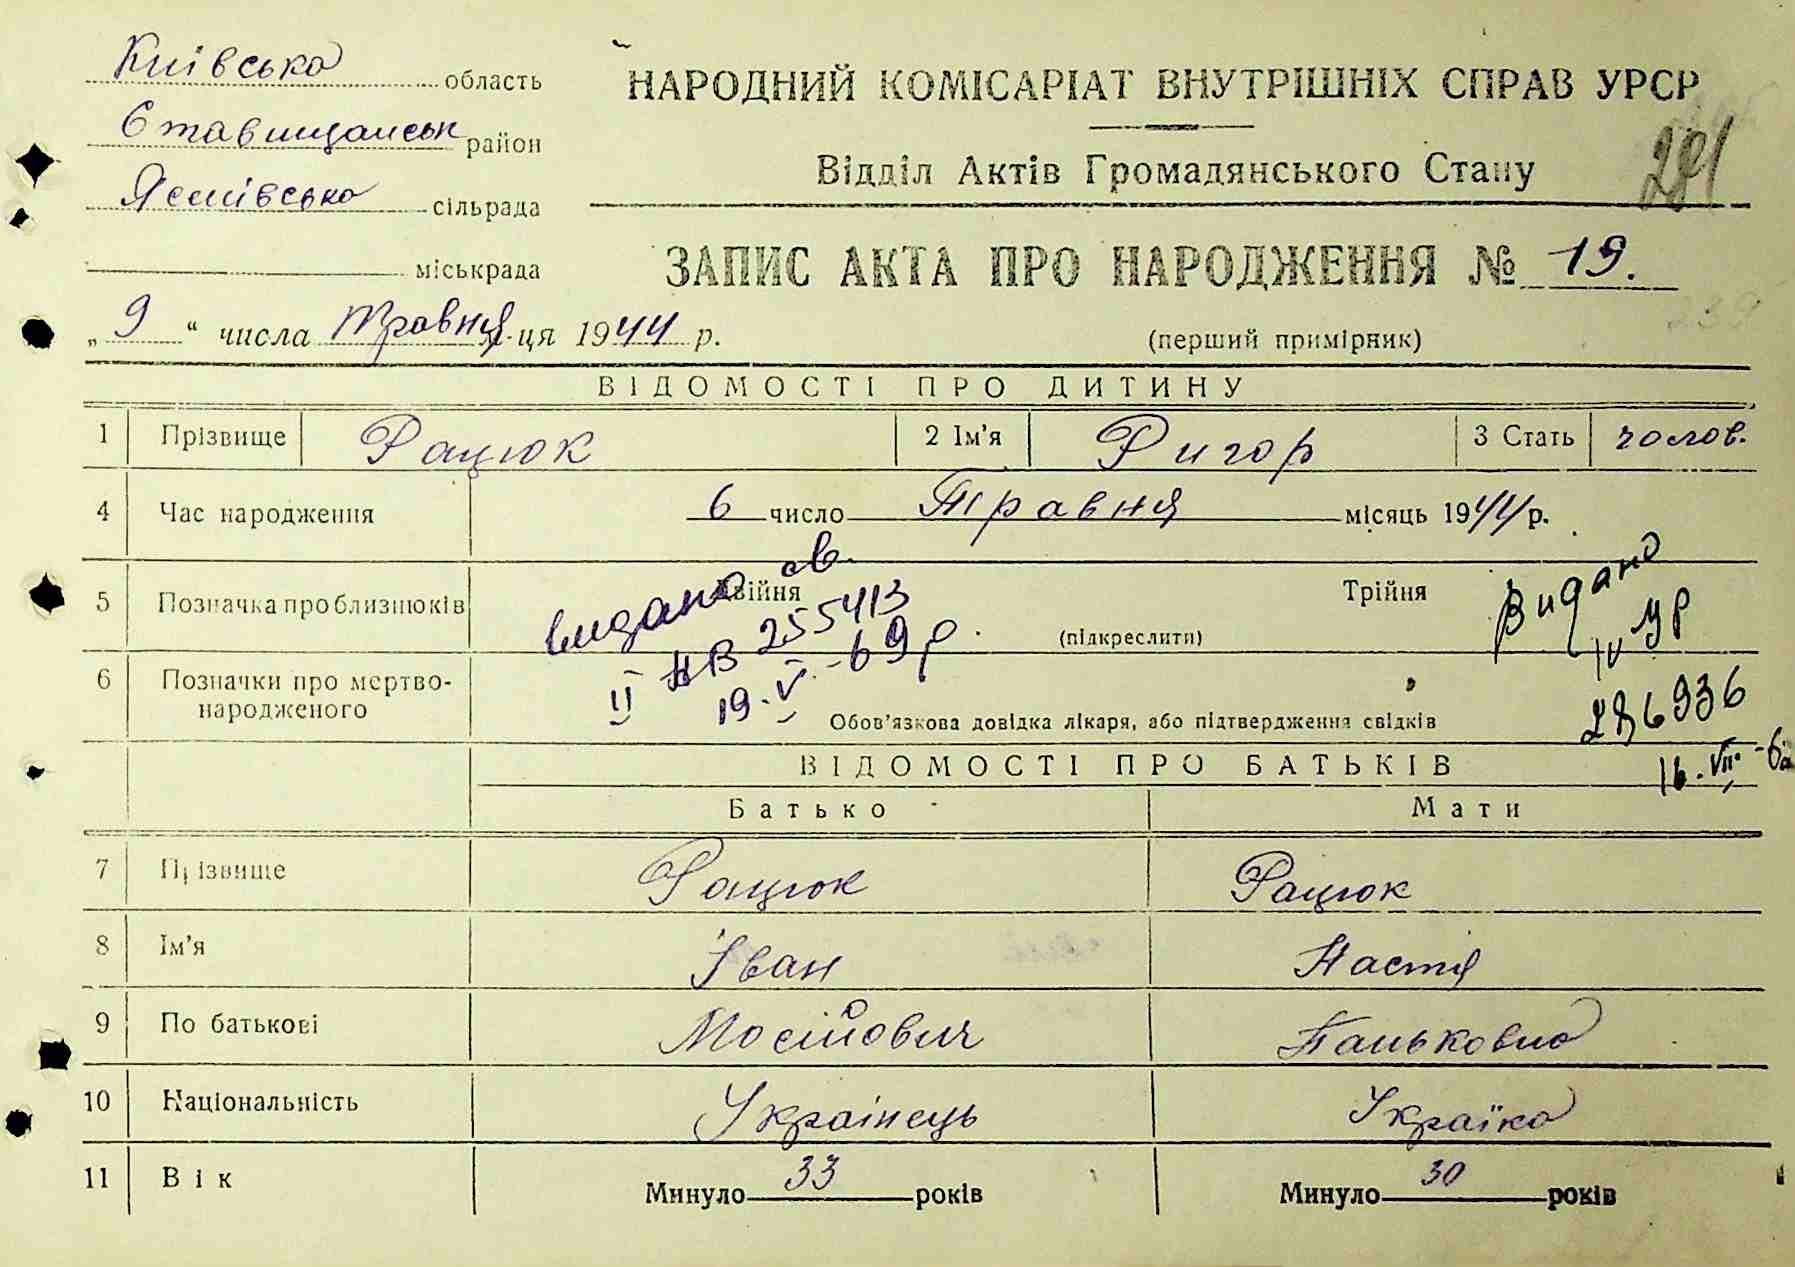 Київська область
Ставищанськ район
Ясинівська сільрада
міськрада
„ 9 “ числа травня м-ця 1944 р.
НАРОДНИЙ КОМІСАРІАТ ВНУТРІШНІХ СПРАВ УРСР
Відділ Актів Громадянського Стану
281
ЗАПИС АКТА ПРО НАРОДЖЕННЯ № 19.
(перший примірник)
239
ВІДОМОСТІ ПРО ДИТИНУ
1 Прізвище Рацюк 2 Ім'я Ригор 3 Стать чолов.
4 Час народження 6 число Травня місяць 1944 р.
5 Позначка про близнюків Двійня Трійня
(підкреслити)
видано св.
II НВ 255413
19.V-69р.
Видано
IV УР
286936
16.VII-6
6 Позначки про мертво-
народженого
Обов'язкова довідка лікаря, або підтвердження свідків
ВІДОМОСТІ ПРО БАТЬКІВ
Батько Мати
7 Прізвище Рацюк Рацюк
8 Ім'я Іван Настя
9 По батькові Мосійович Паньковна
10 Національність Украінець Україка
11 Вік Минуло 33 років Минуло 30 років